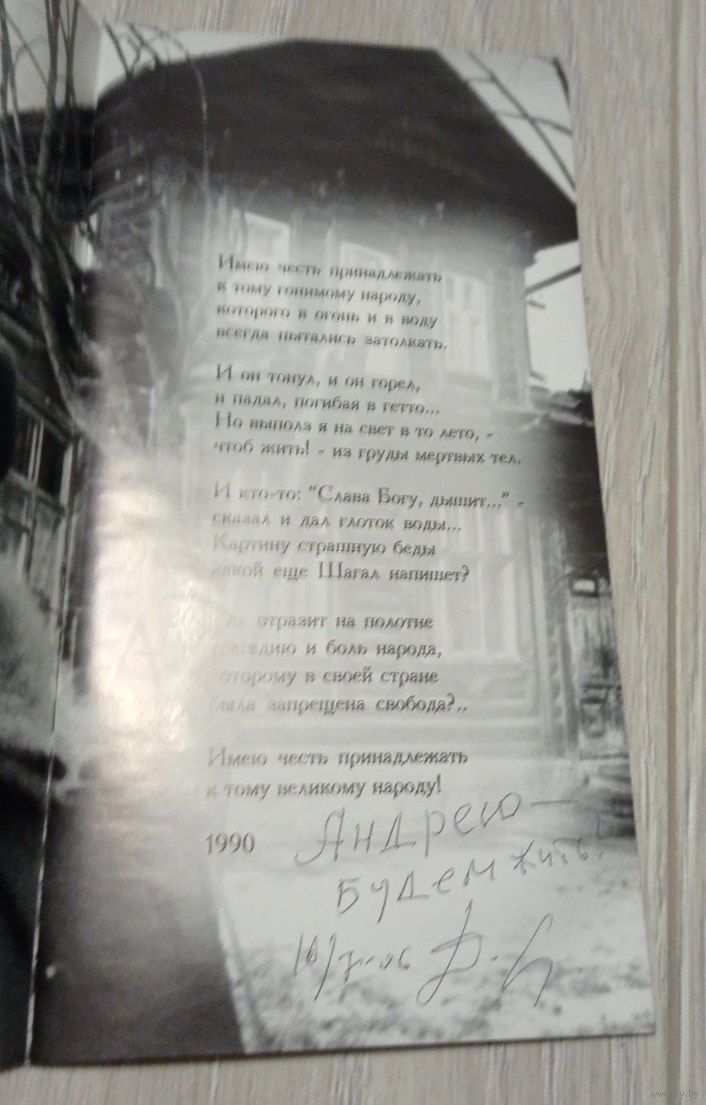 Имею честь принадлежать
к тому гонимому народу,
которого в огонь и в воду
всегда пытались затолкать.
И он тонул, и он горел,
и падал, погибая в гетто...
Но выполз я на свет в то лето, -
чтоб жить! - из груды мертвых тел.
И кто-то: "Слава Богу, дышит..." -
сказал и дал глоток воды...
Картину страшную беды
какой еще Шагал напишет?
отразит на полотне
трагедию и боль народа,
которому в своей стране
была запрещена свобода?..
Имею честь принадлежать
к тому великому народу!
1990
Андрею —
Будем жить!